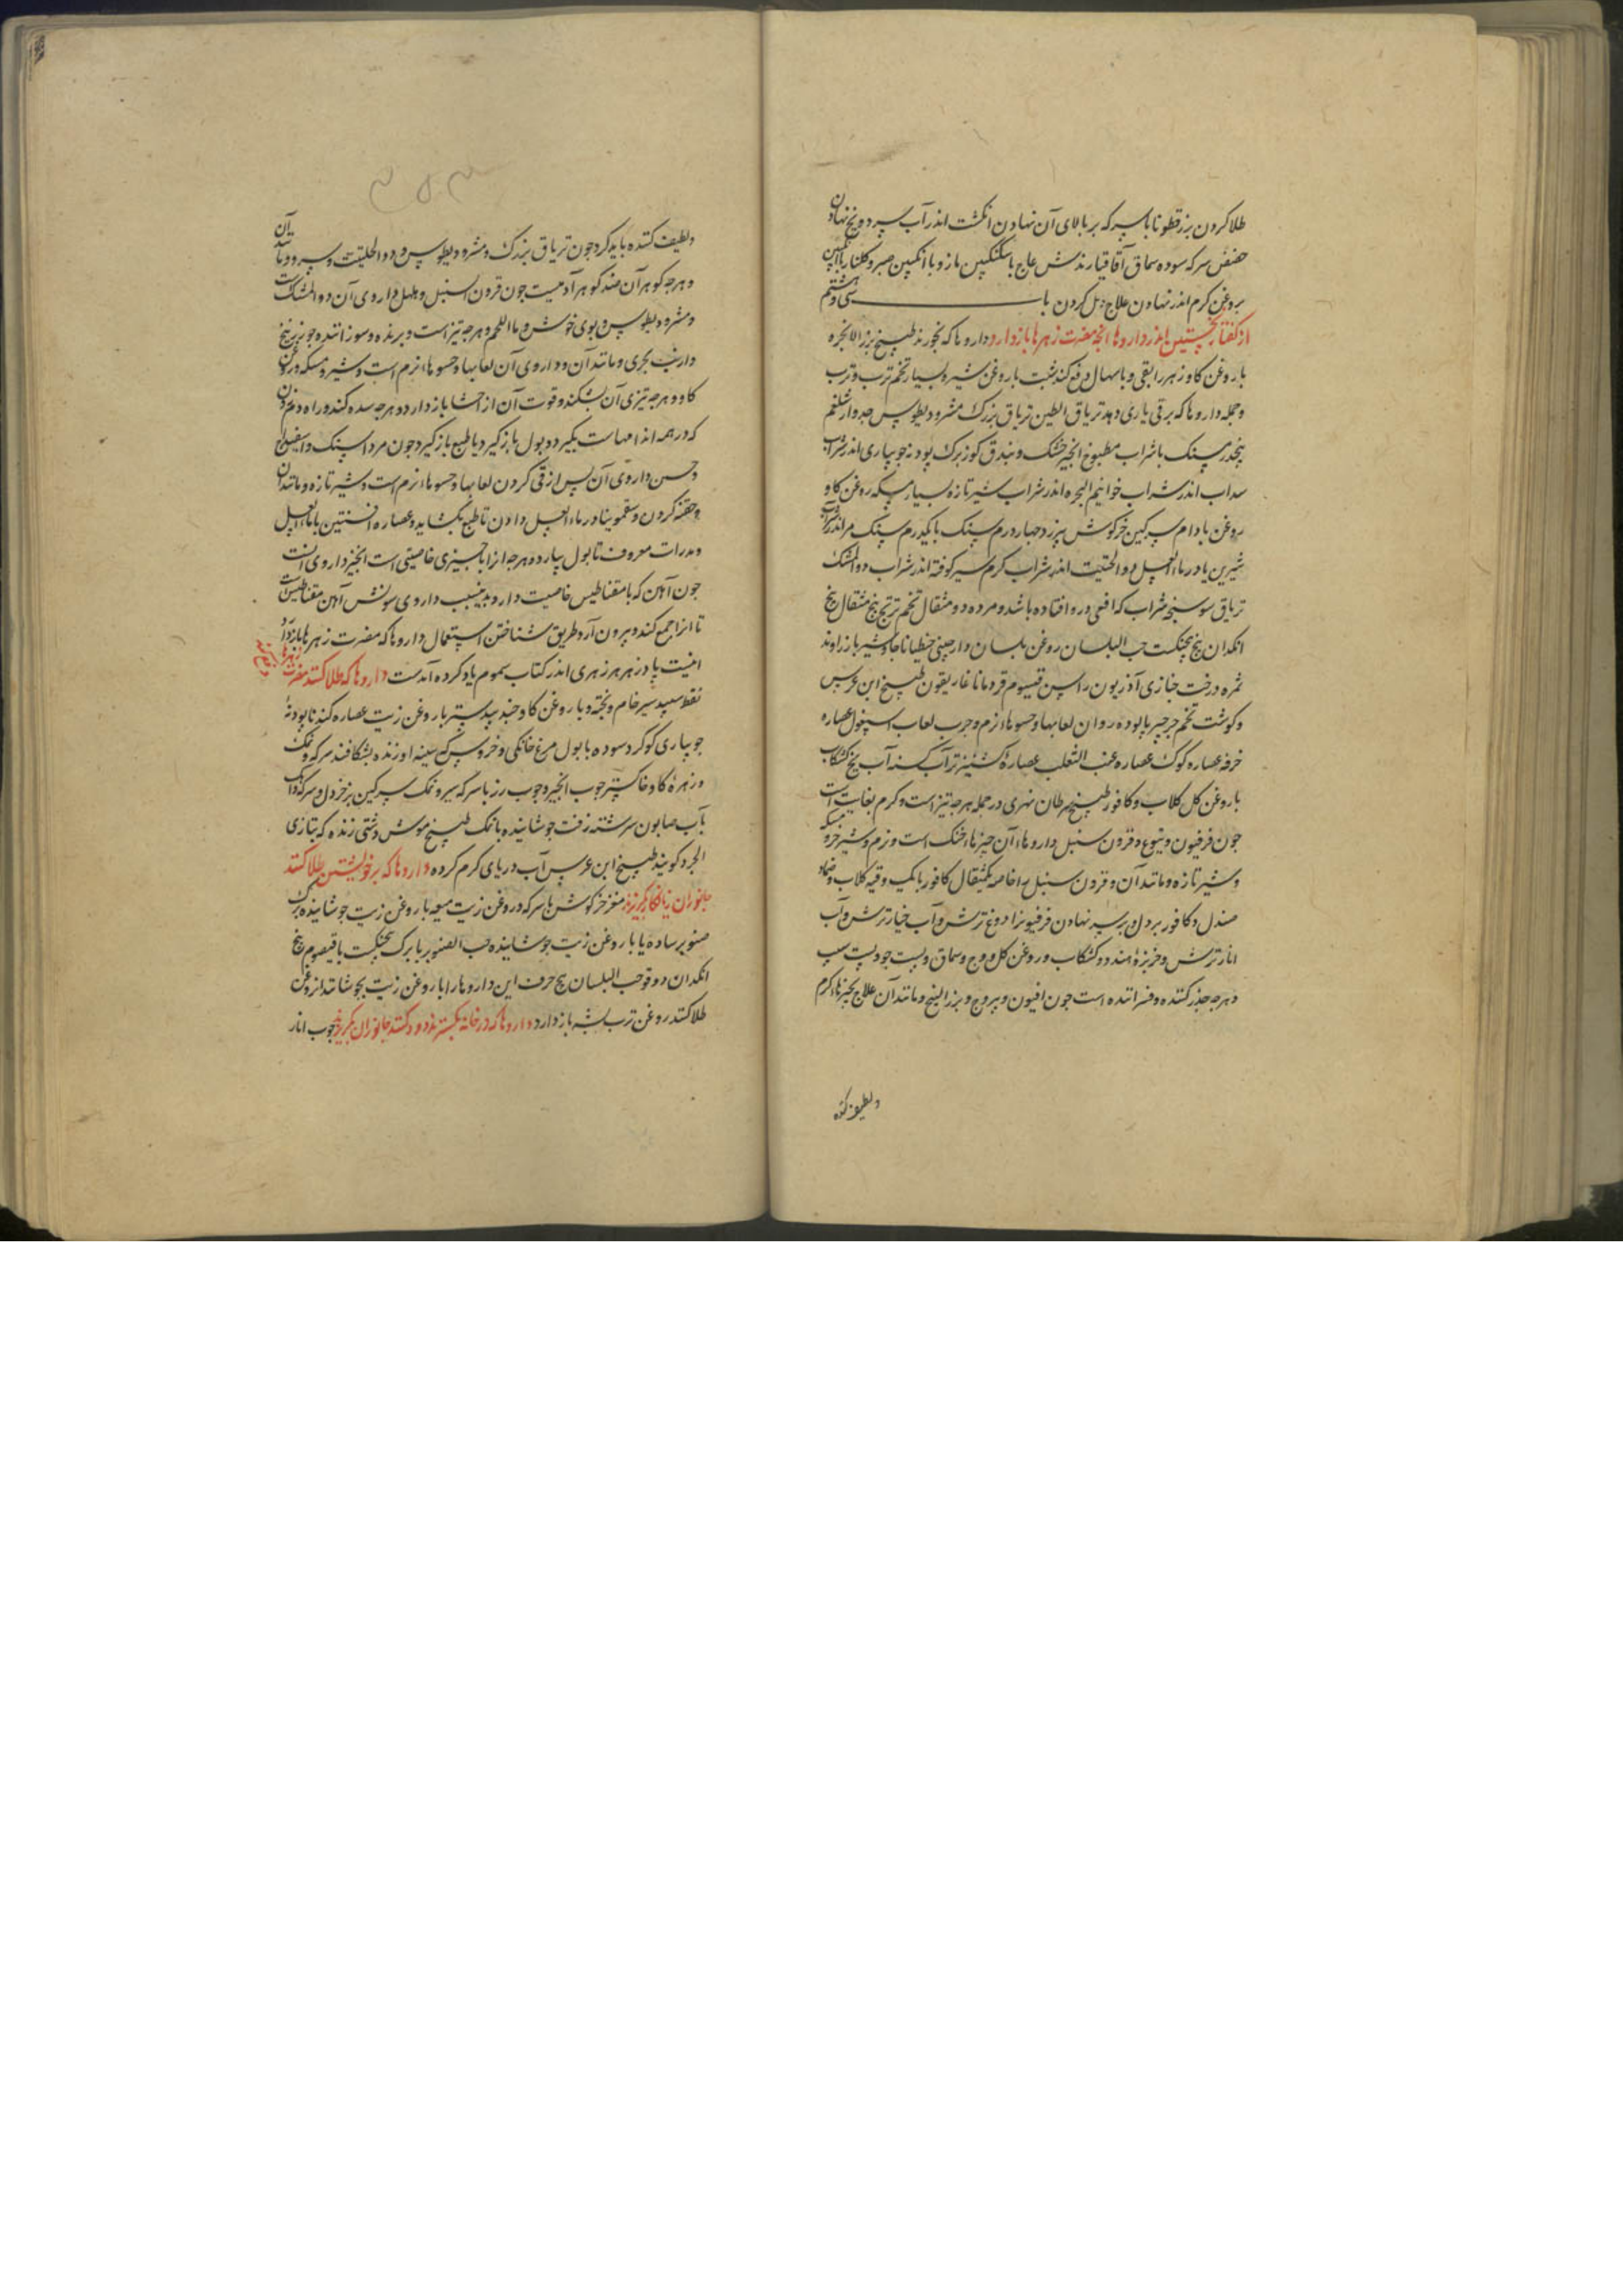 طلا کردن بزرقطونا با سرکه بر بالای آن نهادن انکشت اندر آب سرد و یخ نهادن
حضض سرکه سوده سماق آقاقیا رندش عاج با سکنکبین مازو با انکبین صبر و کلنار با انکبین
بروغن کرم اندر نهادن علاج دمل کردن باب سی و هشتم
از کفتار نخستین اندر داروها انچه مضرت زهرها بازدارد داروها که بخورند طبیخ بزر الانجره
با روغن کاو زهر را بقی و باسهال دفع کند شبت با روغن شیر بسیار تخم ترب و ترب
و جمله داروها که بر قی یاری دهد تریاق الطین تریاق بزرک مثرودیطوس جدوار شلغم
پنجدرمسنک با شراب مطبوخ انجیر خشک و فندق کوز برک پودنه جویباری اندر شراب
سداب اندر شراب تخم انجره اندر شراب شیر تازه بسیار مسکه روغن کاو
روغن بادام سرکین خرکوش چهار درم سنک با یکدرم سنک مر اندر شراب
شیرین یا در ماء العسل دوا الحلتیت اندر شراب کرم سیر کوفته اندر شراب دوا المشک
تریاق سوسنی شراب که افعی درو افتاده باشد و مرده دو مثقال تخم ترنج پنج مثقال بیخ
انکدان بیخ پنجنکشت حب البلسان روغن بلسان دارصینی جنطیانا جاوشیر بازراوند
ثمره درخت خبازی آذریون راسن قیسوم قردمانا غاریقون طبیخ ابن عرس
و کوشت تخم جرجیر پالوده روان لعابها و حسوهاء نرم و چرب لعاب اسپغول عصاره
خرفه عصاره کوک عصاره عنب الثعلب عصارهٔ کشنیز تر آب کسنه آب یخ کشکاب
با روغن کل کلاب و کافور طبیخ سرطان نهری در جمله هرچه تیز است و کرم بغایت است
چون فرفیون و یتوع و قرون سنبل داروهاء آن چیزهاء خنک است و نرم و شیر خرو مسکه
و شیر تازه و مانند آن و قرون سنبل را خاصه یکمثقال کافور با یک وقیه کلاب و ضماد
صندل و کافور بر دل و بر سر نهادن فرفیون را دوغ ترش و آب خیار ترش و آب
انار ترش و خربزهٔ هندو و کشکاب و روغن کل و وج و سماق و پست جو و پست سیب
و هرچه خدر کننده و فسراننده است چون افیون و یبروج و بزر البنج و مانند آن علاج بچیزهاء کرم
و لطیف کننده
۳۵۳
و لطیف کننده باید کرد چون تریاق بزرک و مثرودیطوس و دوا الحلتیت و سیر و مانند آن
و هرچه کوهر آن ضد کوهر آدمیست چون قرون السنبل و هلهل داروی آن دوا المشک است
و مثرودیطوس و بوی خوش و ما اللحم و هرچه تیز است و برنده و سوزاننده چون زرنیخ
و ارنب بحری و مانند آن و داروی آن لعابها و حسوهاء نرم است و شیر و مسکه و روغن
کاو و هرچه تیزی آن بشکند و قوت آن از احشا بازدارد و هرچه سده کند و راه دم زدن
که در همه اندامهاست بکیرد و بول بازکیرد یا طبع بازکیرد چون مرداسنک و اسفیداج
و جبسین داروی آن پس از قی کردن لعابها و حسوهاء نرم است و شیر تازه و مانند آن
و حقنه کردن و سقمونیا در ماء العسل دادن تا طبع بکشاید و عصاره افسنتین با ماء العسل
و مدرات معروف تا بول بیارد و هرچه از را بچیزی خاصیتی است انچیز داروی انست
چون آهن که با مقناطیس خاصیت دارد بدینسبب داروی سونش آهن مقناطیس است
تا انرا جمع کند و بیرون آرد طریق شناختن استعمال داروها که مضرت زهرها بازدارد
اینست پادزهر هر زهری اندر کتاب سموم یاد کرده آمدست داروها که طلا کنند مضرت زهرها بازدارد
نفط سپید سیر خام و پخته و با روغن کاو جندبیدستر با روغن زیت عصاره کندنا پودنهٔ
جویباری کوکرد سوده با بول مرغ خانکی و خروس که سینه او زنده بشکافند سرکه و نمک
و زهرهٔ کاو خاکستر چوب انجیر و چوب رز با سرکه سیر و نمک سرکین بز خردل و سرکه و آهک
بآب صابون سرشته زفت جوشانیده با نمک طبیخ موش دشتی زنده که بتازی
الجرد کویند طبیخ ابن عرس آب دریای کرم کرده داروها که بر خویشتن طلا کنند
جانوران زیانکار بکریزند مغز خرکوش با سرکه در روغن زیت میعه با روغن زیت جوشانیده برک
صنوبر ساده یا با روغن زیت جوشانیده حب الصنوبر با برک پنجنکشت یا قیصوم بیخ
انکدان دوقو حب البلسان بیخ حرف این داروها را با روغن زیت بجوشانند از روغن
طلا کنند روغن ترب پشه بازدارد داروها که در خانه بکسترند و دود کنند جانوران بکریزند چوب انار